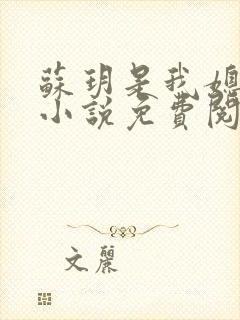 蘇玥是我媳
小説免費閱
文麗